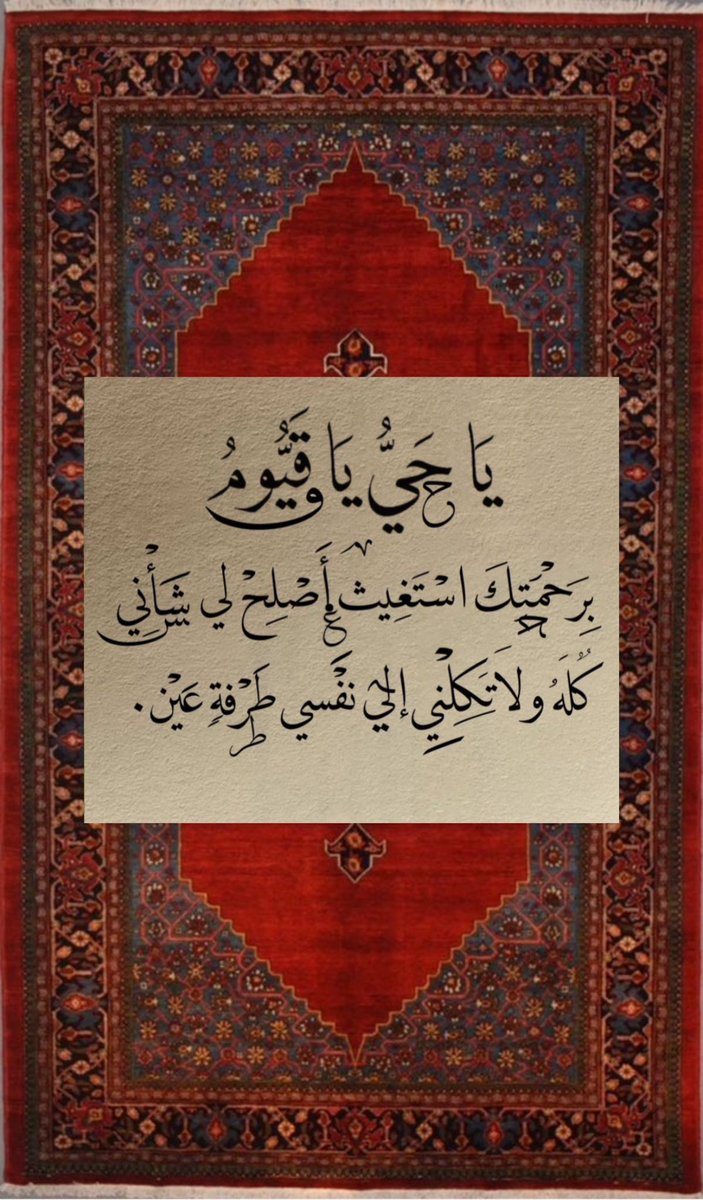 يَا حَيُّ يَا قَيُّومُ
بِرَحْمَتِكَ اسْتَغِيث أَصْلِحْ لي شَأْنِي
كُلَهُ ولَا تَكِلْنِي إلى نَفْسي طَرْفةِ عَيْن.